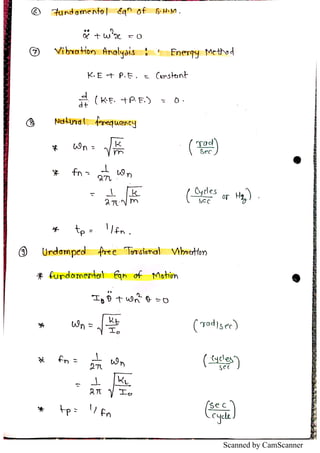 ⑥ Fundamental Eqn of S.H.M.
ẍ + ω²x = 0
⑦ Vibration Analysis : Energy Method
K.E + P.E. = Constant
d/dt (K.E. + P.E.) = 0.
⑧ Natural frequency
* ωn = √(K/m) (rad/sec)
* fn = 1/2π ωn
= 1/2π √(K/m) (Cycles/sec or Hz).
* tp = 1/fn.
⑨ Undamped free Torsional Vibration
* fundamental Eqn of Motion
I₀ θ̈ + ωn² θ = 0
* ωn = √(Kt/I₀) (rad/sec)
* fn = 1/2π ωn (cycles/sec)
= 1/2π √(Kt/I₀)
* tp = 1/fn (sec/cycle)
Scanned by CamScanner